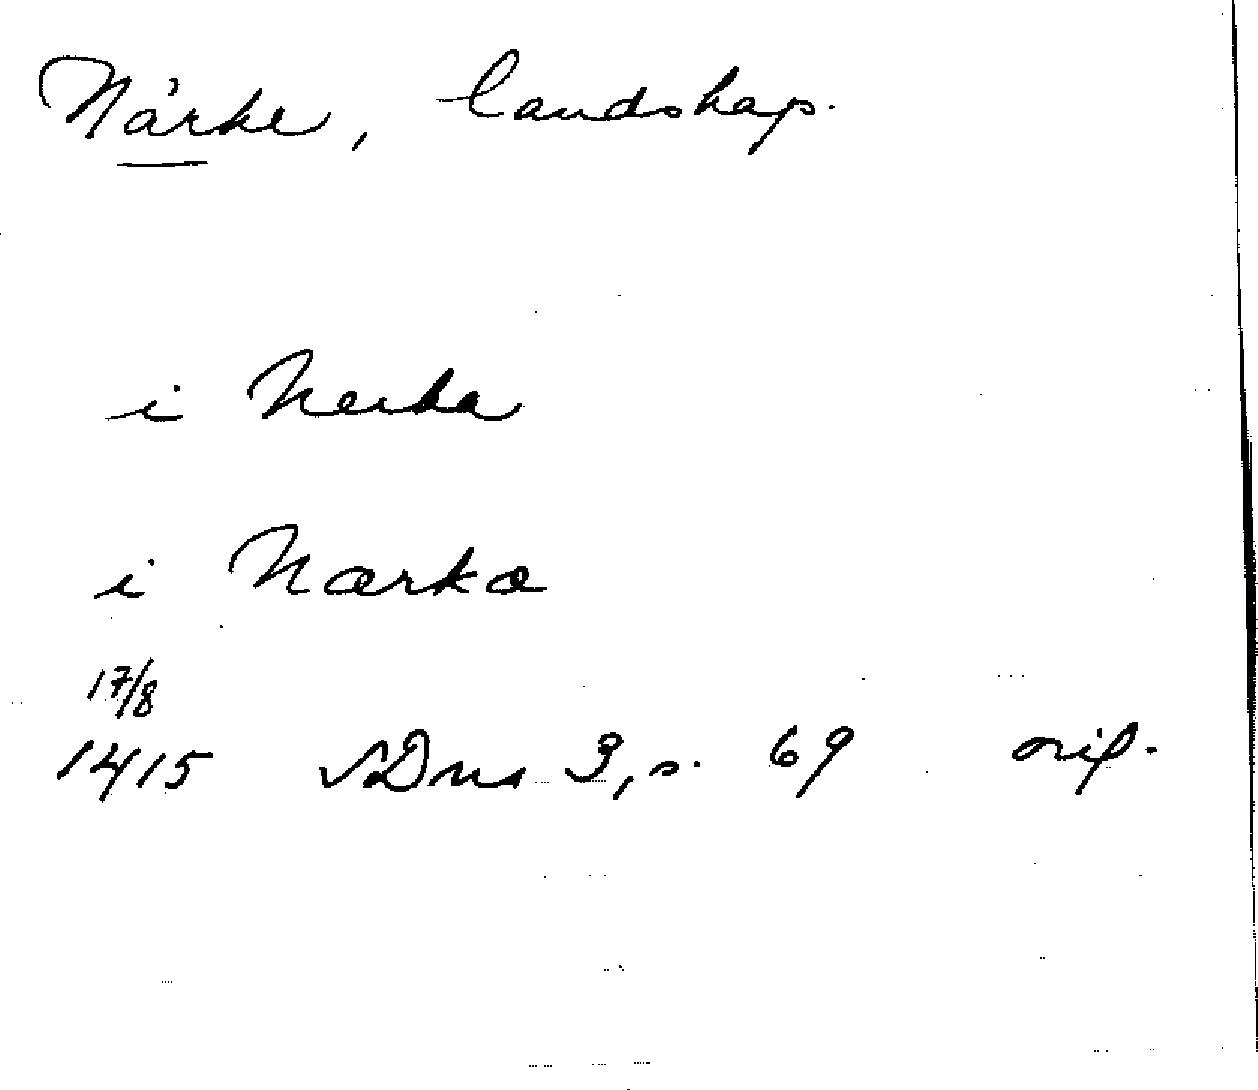 Närke, landskap.
i Nerka
i Nærkæ
17/8
1415 SDns 3, s. 69 orig.